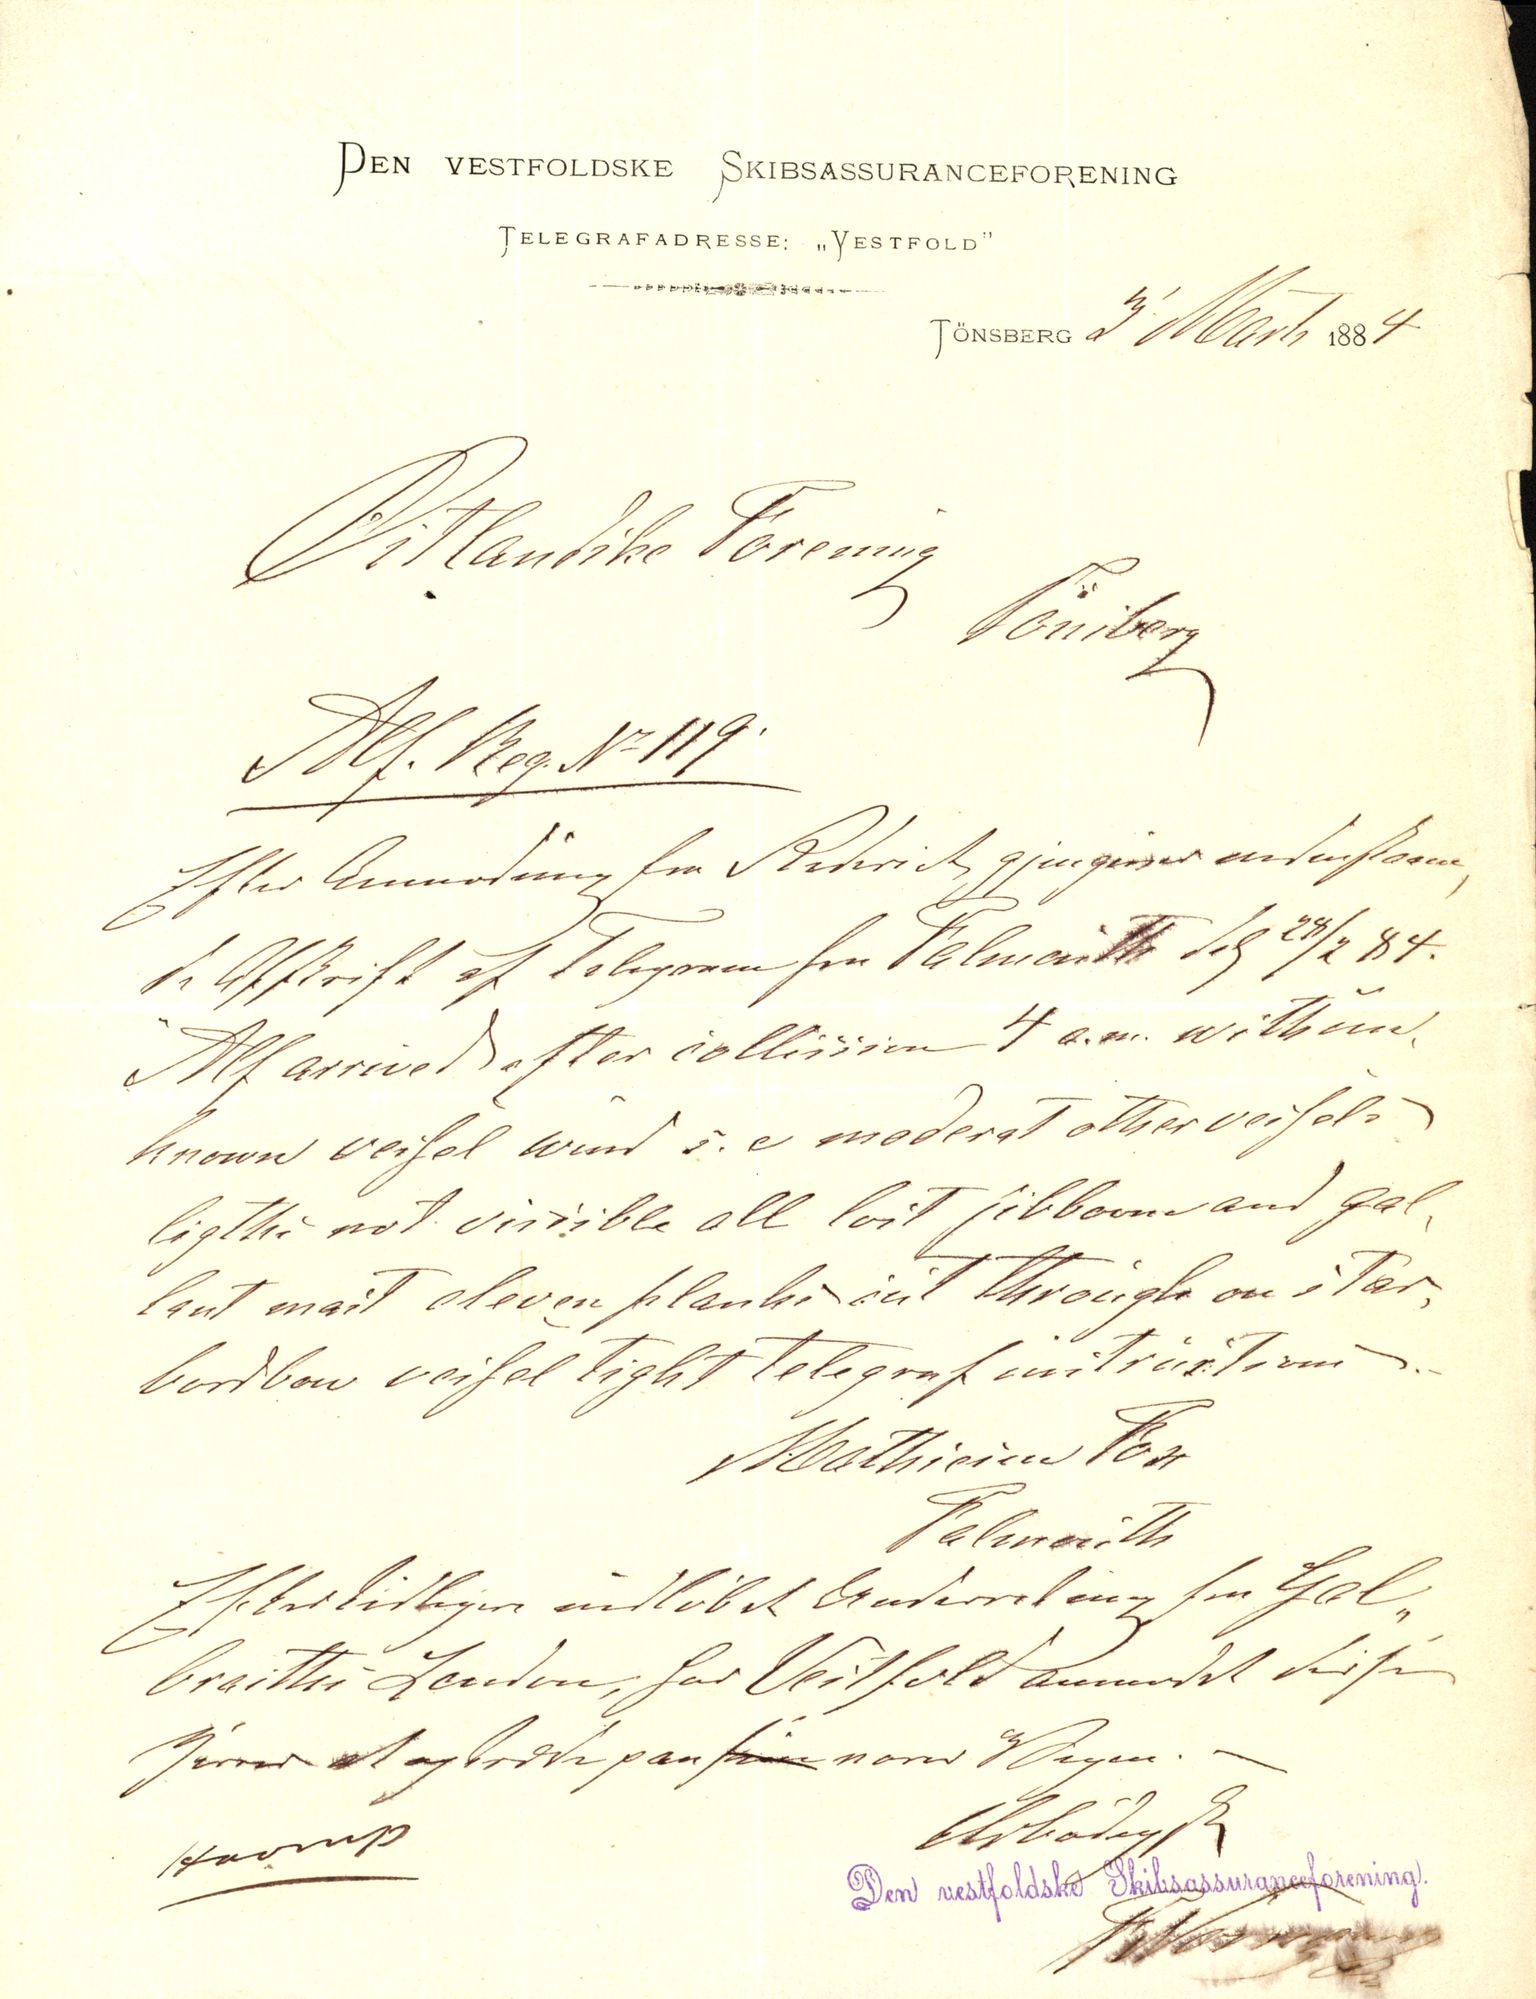 DEN VESTFOLDSKE SKIBSASSURANCEFORENING
TELEGRAFADRESSE: „VESTFOLD”
TÖNSBERG 3' Marts 1884
Oitlandske Forening
Tönsberg
Alf. Reg. No 119.
Efter Anmodning fra Rederiet gjengives nedenstaaen,
de Afskrift af Telegram fra Falmouth dd 28/2 84.
"Alf arrived after collission 4 a.m. with un,
known vessel wind s.e moderat other vessels
ligths not vissible all lost jibboom and gal,
lant mast eleven planks cut through on star,
bordbow vessel tight telegraf instructions.-
Mathisson Fox
Falmouth
Efter tidligere indløbet Underretning fra Gal„
braiths London, har Vestfold anmodet disse
Herrer at optræde paa vore Vegne. -
Ærbødigst
Havorup
Den vestfoldske Skibsassuranceforening.